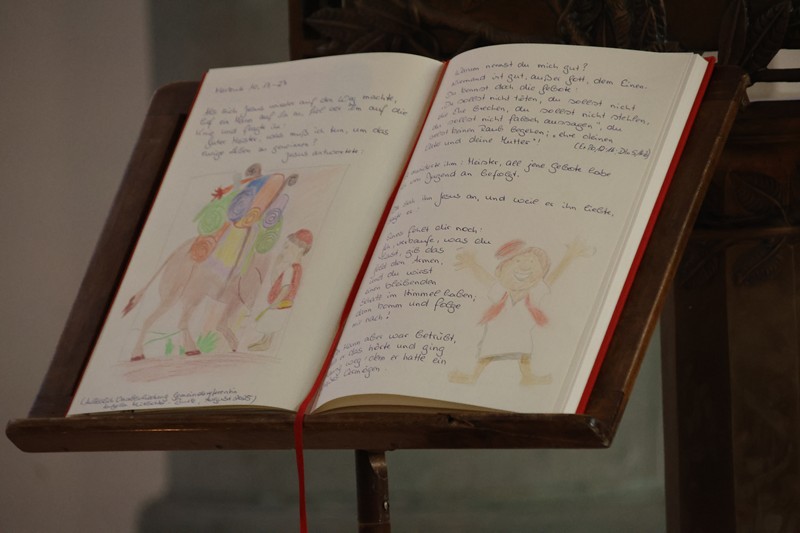 Als sich Jesus wieder auf den Weg machte,
lief ein Mann auf ihn zu, fiel vor ihm auf die
Knie und fragte ihn:
Guter Meister, was muß ich tun, um das
ewige Leben zu gewinnen?
Jesus antwortete:
Warum nennst du mich gut?
Niemand ist gut, außer Gott, dem Einen.
Du kennst doch die Gebote:
Du sollst nicht töten, du sollst nicht
die Ehe brechen, du sollst nicht stehlen,
du sollst nicht falsch aussagen, du
sollst keinen Raub begehen; ehre deinen
Vater und deine Mutter!
erwiderte ihm: Meister, all jene Gebote habe
von Jugend an befolgt.
sah ihn Jesus an, und weil er ihn liebte,
sagte er
eines fehlt dir noch:
verkaufe, was du
hast, gib das
Geld den Armen,
und du wirst
einen bleibenden
Schatz im Himmel haben;
dann komm und folge
mir nach!
Mann aber war betrübt,
als er das hörte und ging
weg; denn er hatte ein
Vermögen